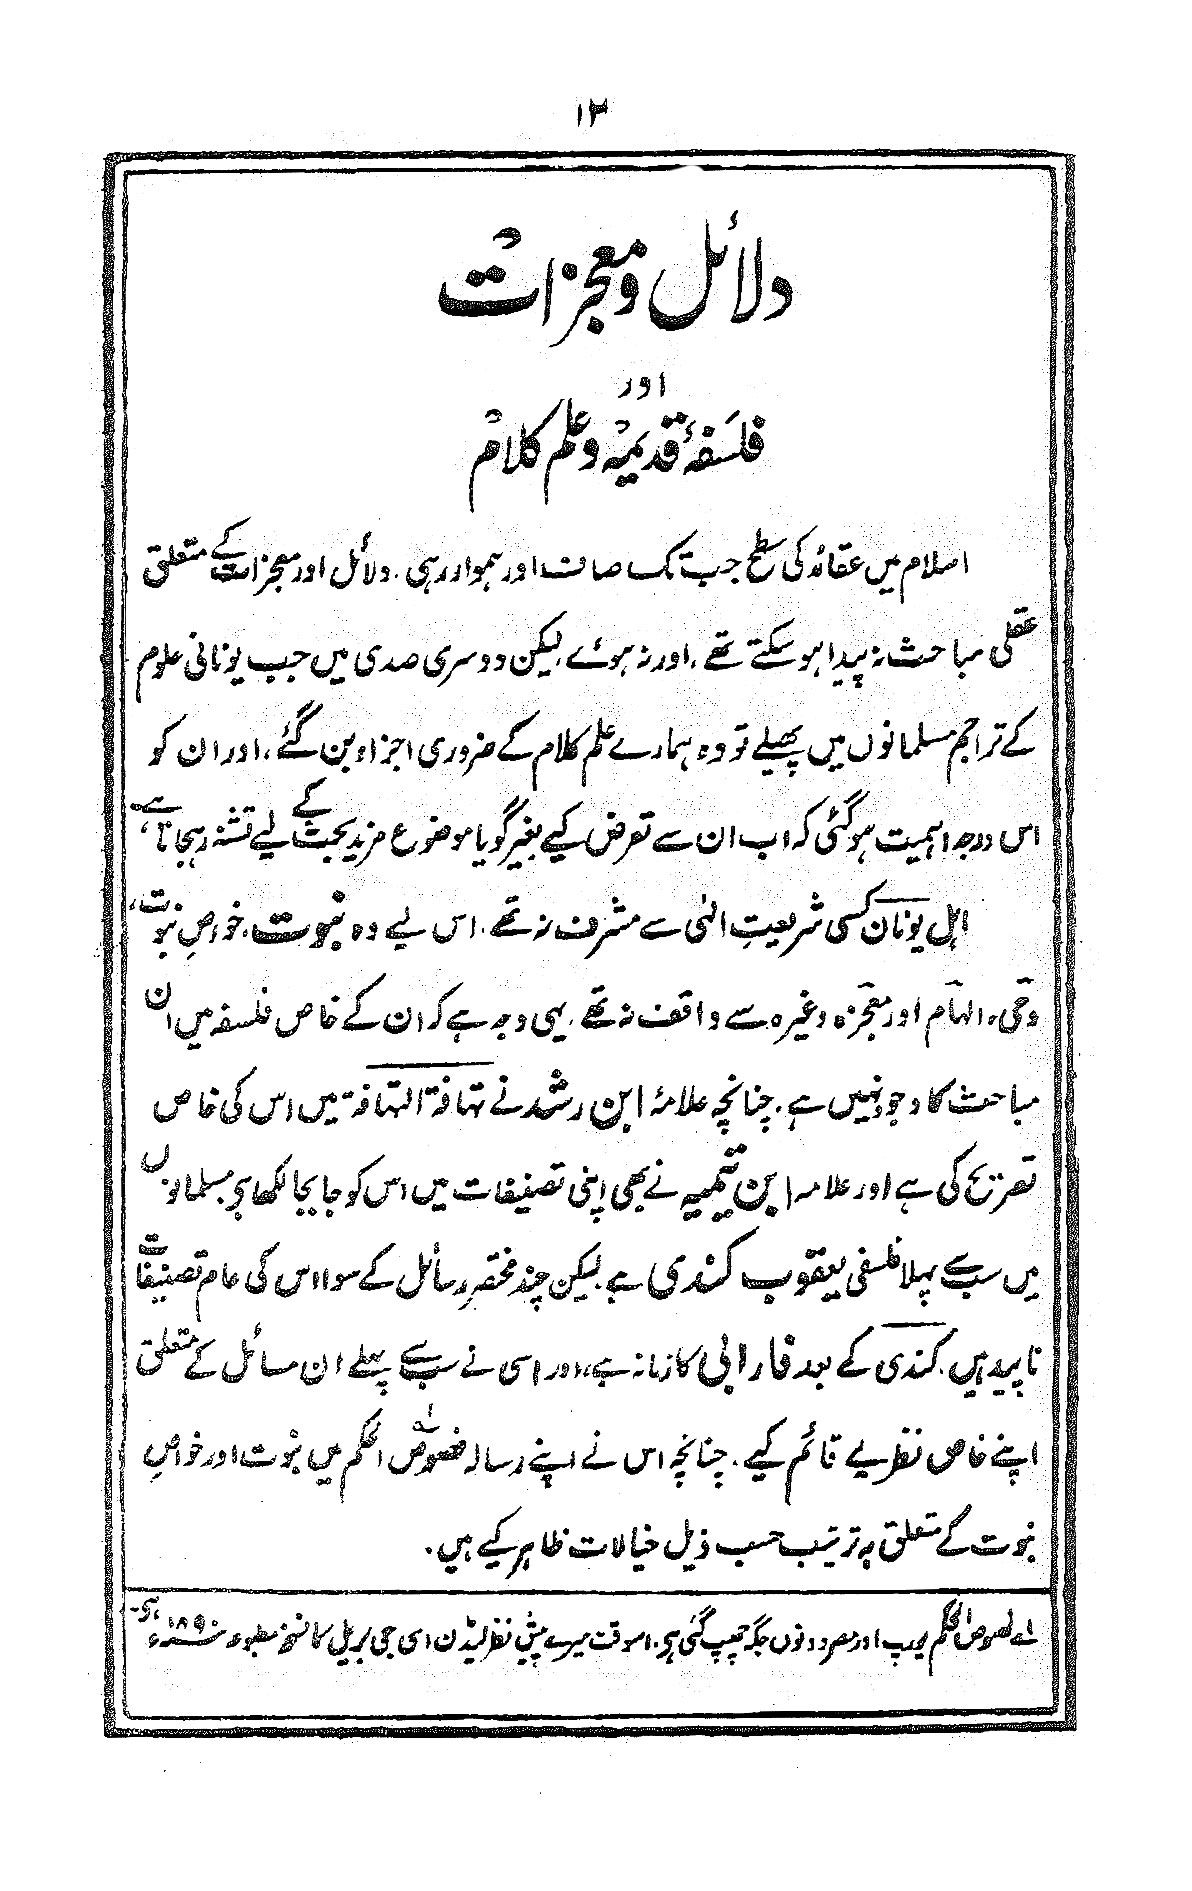 ۱۳
دلائل و معجزات
اور
فلسفۂ قدیمہ و علم کلام
اسلام میں عقائد کی سطح جب تک صاف اور ہموار رہی، دلائل اور معجزات کے متعلق
عقلی مباحث نہ پیدا ہو سکتے تھے، اور نہ ہوئے، لیکن دوسری صدی میں جب یونانی علوم
کے تراجم مسلمانوں میں پھیلے تو وہ ہمارے علم کلام کے ضروری اجزاء بن گئے، اور ان کو
اس درجہ اہمیت ہو گئی کہ اب ان سے تعرض کیے بغیر گویا موضوع مزید بحث کے لیے تشنہ رہجاتا ہے،
اہل یونان کسی شریعتِ الٰہی سے مشرف نہ تھے، اس لیے وہ نبوت، خواصِ نبوت،
وحی، الہام اور معجزہ وغیرہ سے واقف نہ تھے، یہی وجہ ہے کہ ان کے خاص فلسفہ میں ان
مباحث کا وجود نہیں ہے، چنانچہ علامۂ ابن رشد نے تہافۃ التہافۃ میں اس کی خاص
تصریح کی ہے اور علامہ ابن تیمیہ نے بھی اپنی تصنیفات میں اس کو جابجا لکھا ہی، مسلمانوں
میں سب سے پہلا فلسفی یعقوب کندی ہے، لیکن چند مختصر رسائل کے سوا اس کی عام تصنیفات
ناپید ہیں، کندی کے بعد فارابی کا زمانہ ہے، اور اسی نے سب سے پہلے ان مسائل کے متعلق
اپنے خاص نظریے قائم کیے، چنانچہ اس نے اپنے رسالہ فصوص الحکم میں نبوت اور خواصِ
نبوت کے متعلق بہ ترتیب حسب ذیل خیالات ظاہر کیے ہیں،
لہ فصوص الحکم یورپ اور مصر دونوں جگہ چھپ گئی ہی، اسوقت میرے پیش نظر لیڈن ای جی بریل کا نسخہ مطبوعہ ہی۔